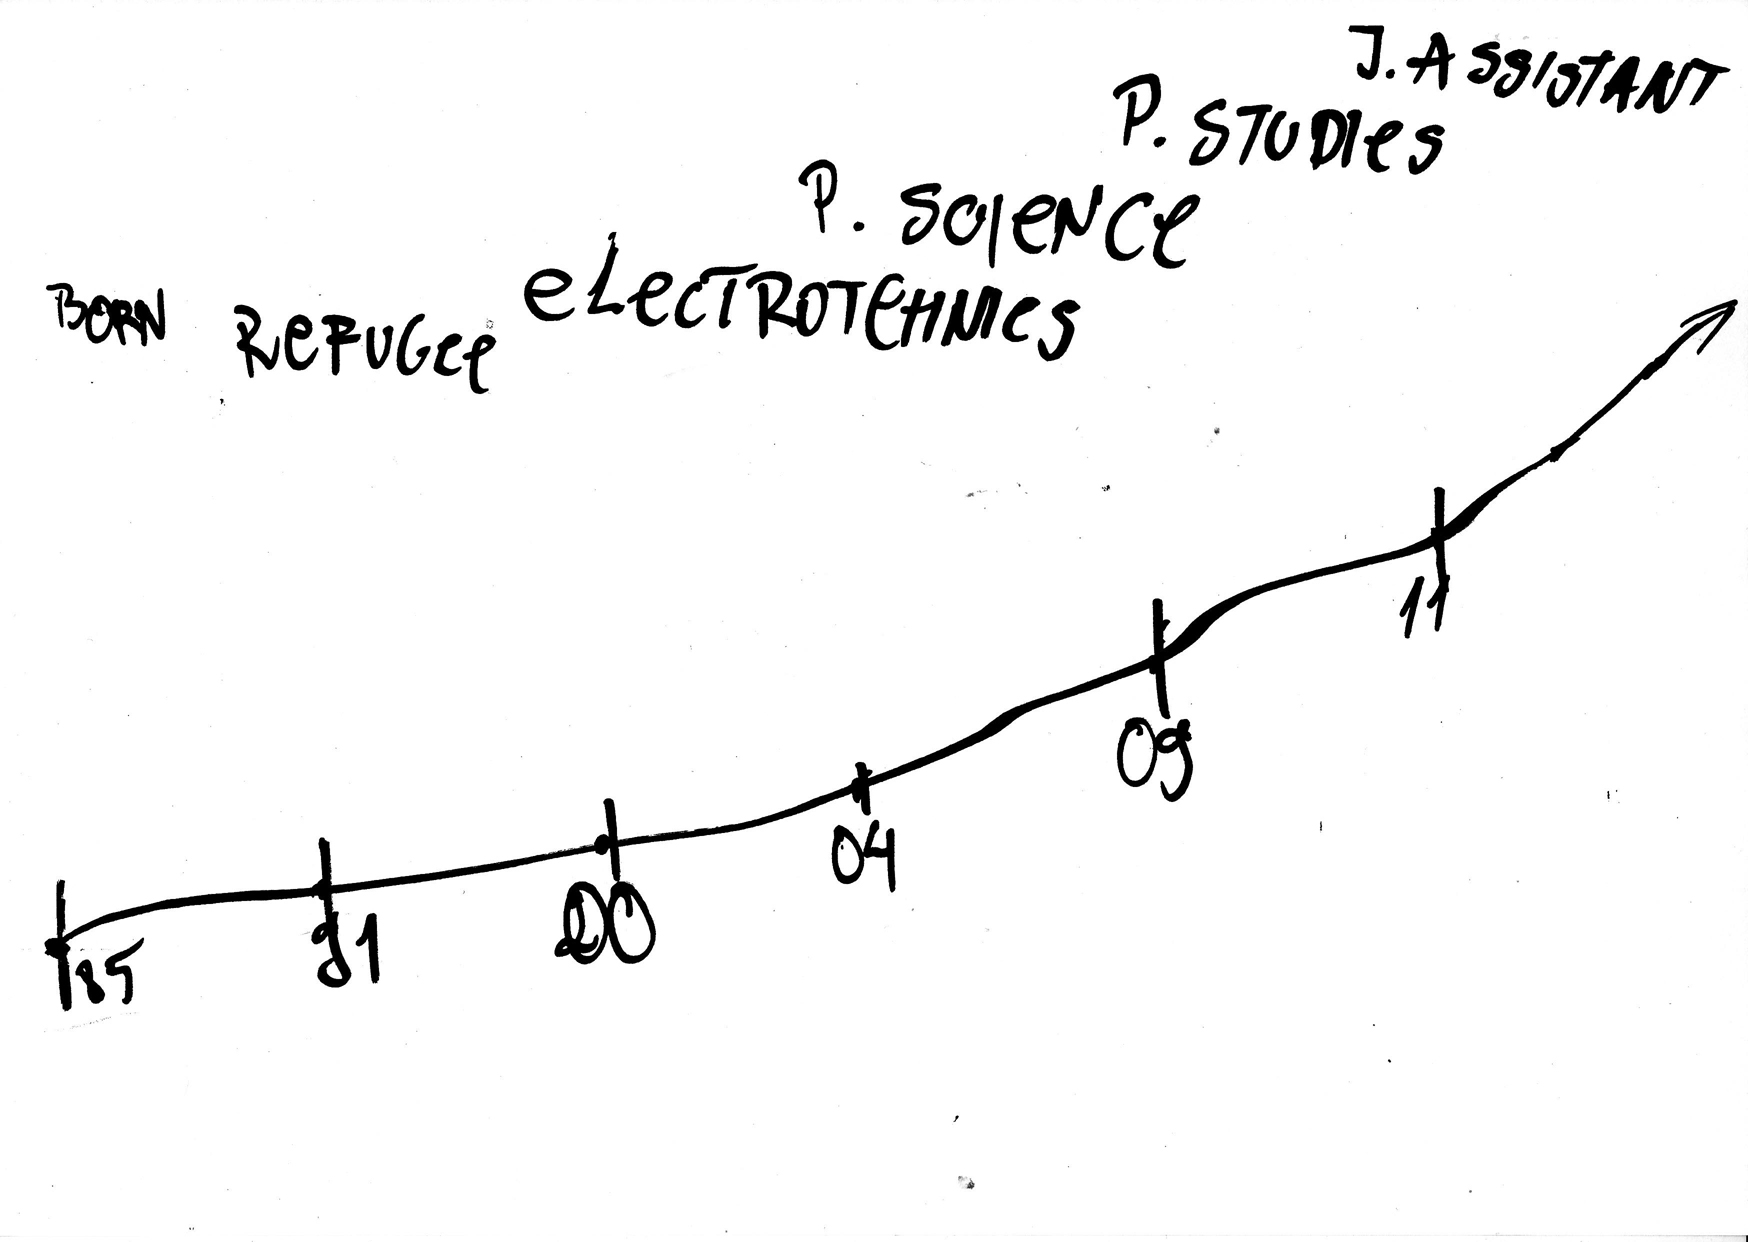 BORN
REFUGEE
ELECTROTEHNICS
P. SCIENCE
P. STUDIES
J. ASSISTANT
85
91
00
04
09
11